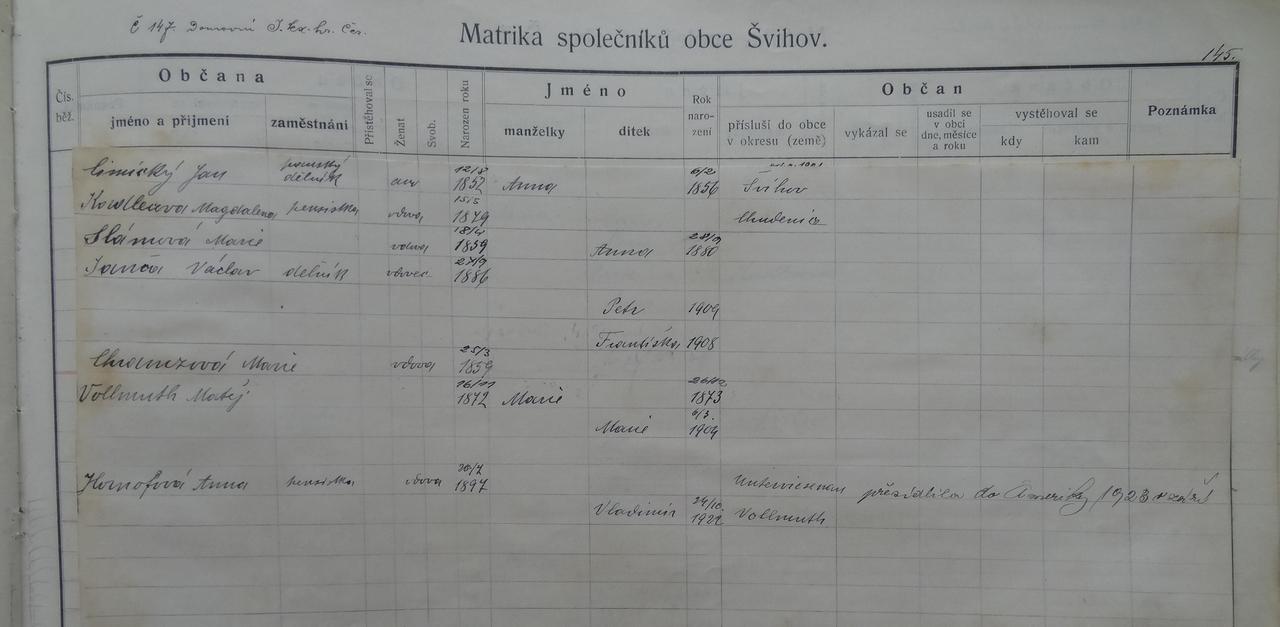 Č 147. Domovní
Matrika společníků obce Švihov.
145.
Čís. běž.
Občana
jméno a přijmení
zaměstnání
Přistěhoval se
Ženat
Svob.
Narozen roku
Jméno
manželky
ditek
Rok naro- zení
Občan
přísluší do obce v okresu (země)
vykázal se
usadil se v obci dne, měsíce a roku
vystěhoval se
kdy
kam
Poznámka
Jan dělník 1852 Anna 6/2 1856 Švihov
Magdalena pensistka vdova 15/5 1879 Chudenic
Slámová Marie vdova 18/4 1859 Anna 28/9 1880
Janča Václav dělník vdovec 27/9 1886
Petr 1909
Františka 1908
Marie vdova 25/3 1859
Vollmuth Matěj 16/11 1872 Marie 1873
Marie 6/3. 1909
Anna pensistka vdova 20/7 1897 Unterwiesenau přesídlila do Ameriky 1923 v září
Vladimír 24/10. 1922 Vollmuth